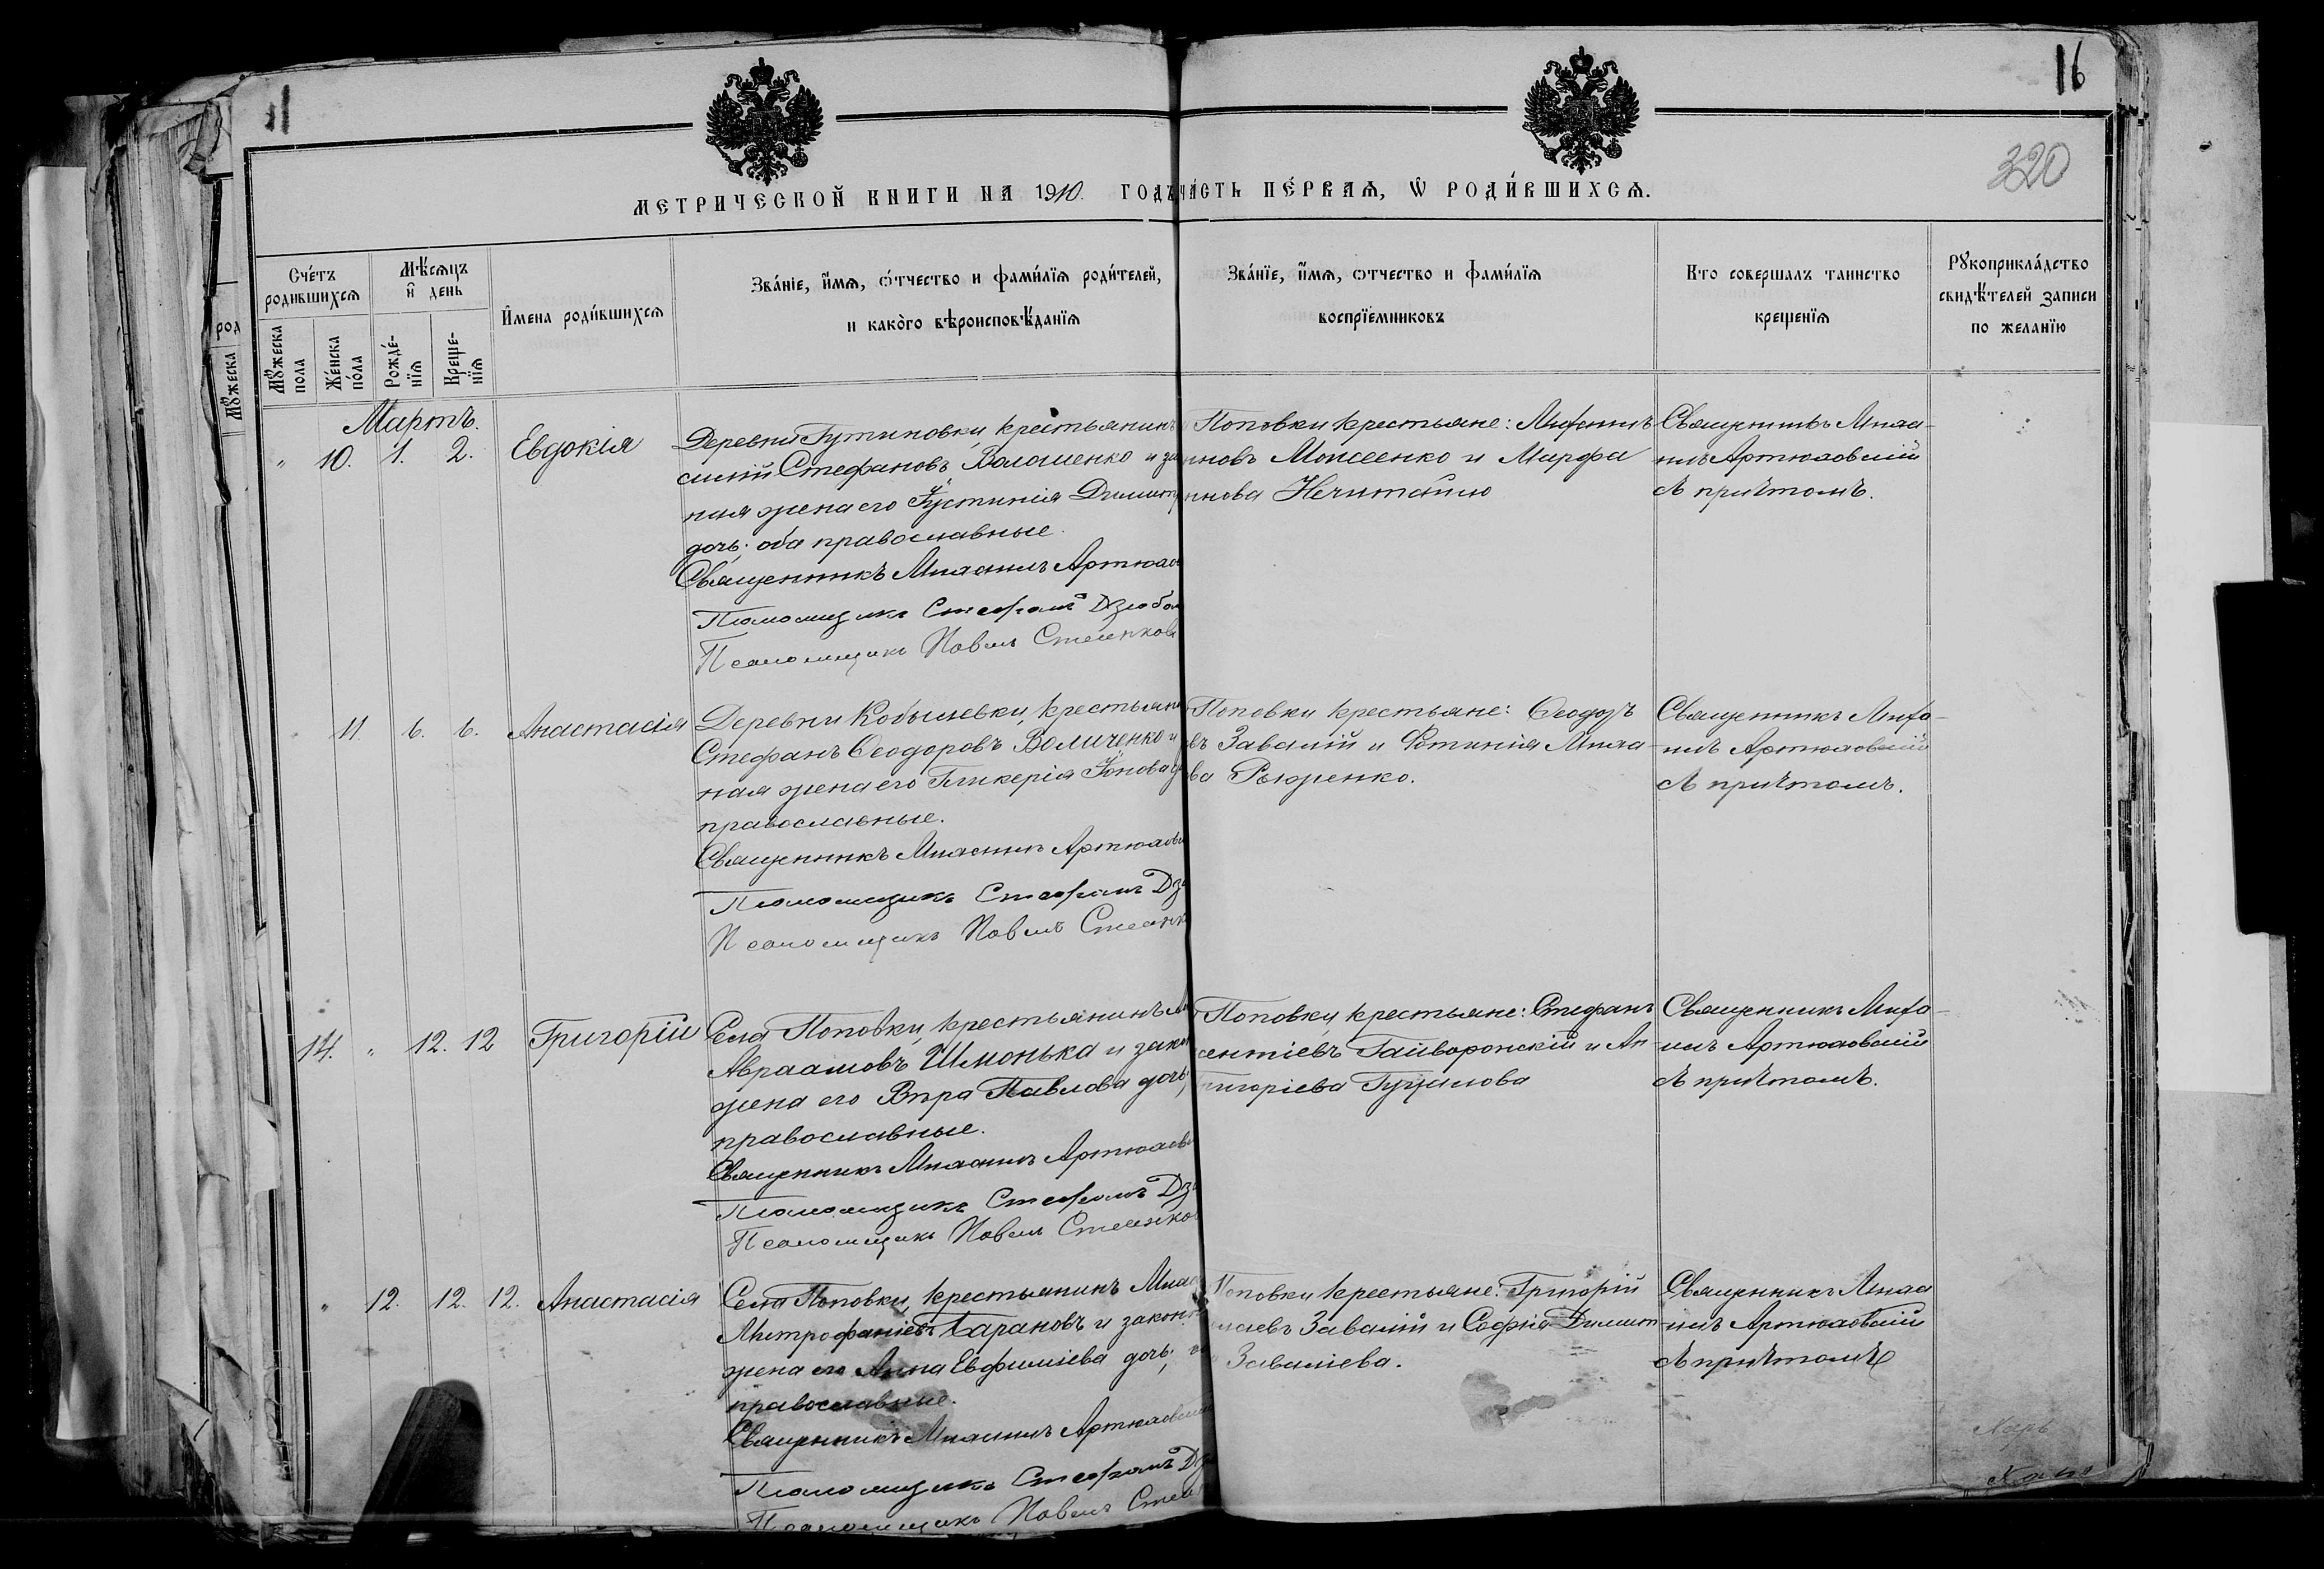 11
16
320
МЕТРИЧЕСКОЙ КНИГИ НА 1910. ГОДЪ ЧА́СТЬ ПЕ́РВАѦ, Ѡ РОДИ́ВШИХСѦ.
Сче́тъ родившихсѧ
Мꙋ́жеска пола
Же́нска по́ла
Мѣ́сѧцъ и҆ день
Рожде́нїѧ
Креще́нїѧ
И҆мена роди́вшихсѧ
Зва́нїе, и҆́мѧ, ѻ́тчество и фами́лїѧ роди́телей,
и како́го вѣроисповѣ́данїѧ
Зва́нїе, и҆́мѧ, ѻтчество и фами́лїѧ
воспрїе́мниковъ
Кто совершалъ таинство
крещенїѧ
Рꙋкоприкла́дство
свидѣ́телей записи
по желанїю
род
Мꙋжеска
Мартъ.
" 10. 1. 2. Евдокія
Деревни Гутиновки крестьянинъ
Стефановъ Волошенко и
ная жена его Іустинія
дочь; оба православные.
Священникъ Михаилъ
Псаломщикъ Стефанъ
Псаломщикъ Павелъ
Поповки крестьяне:
Моисеенко и Марфа
Нечитайло
Священникъ Миха-
илъ Артюховскій
съ причтомъ.
11. 6. 6. Анастасія
Деревни Кобылевки, крестьян
Стефанъ Ѳеодоровъ Величенко и
ная жена его Гликерія Іонова
православные.
Священникъ Михаилъ
Псаломщикъ Стефанъ
Псаломщикъ Павелъ
Поповки крестьяне: Ѳеодоръ
въ Завалій и Фотинія Миха-
ва Рыженко.
Священникъ Миха-
илъ Артюховскій
съ причтомъ.
14. " 12. 12 Григорій
Села Поповки, крестьянинъ
Авраамовъ Шмонька и зако
жена его Вѣра Павлова дочь;
православные.
Священникъ Михаилъ
Псаломщикъ Стефанъ
Псаломщикъ Павелъ
Поповки крестьяне: Стефанъ
ентіевъ Гайворонскій и Ан-
ригоріева
Священникъ Миха-
илъ Артюховскій
съ причтомъ.
" 12. 12. 12. Анастасія
Села Поповки, крестьянинъ Миха
Митрофаніевъ Тарановъ и законн
жена его Анна Евфиміева дочь;
православные.
Священникъ Михаилъ
Псаломщикъ Стефанъ
Псаломщикъ Павелъ
Поповки крестьяне: Григорій
лаевъ Завалій и Софія Димит-
Завалієва.
Священникъ Миха
илъ Артюховскій
съ причтомъ